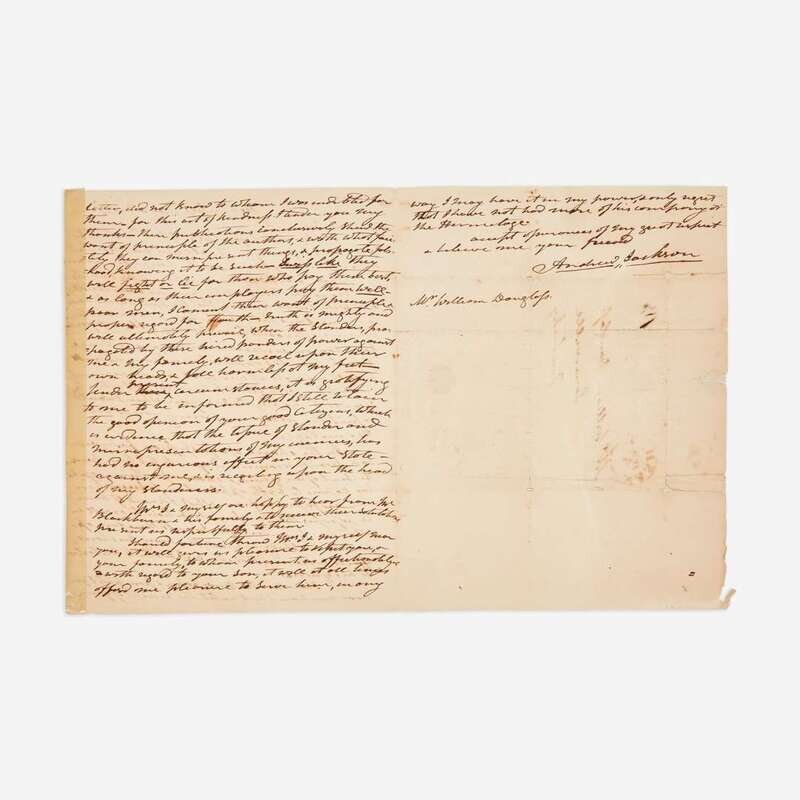 letter, did not know to whom I was indebted for
them - for this act of kindness I tender you my
thanks - These publications conclusively shew the
want of principle of the authors, & with what faci-
lity they can misrepresent things, & propagate fals-
hood knowing it to be such - Swiss like they
will fight or lie for those who pay them best,
& as long as their employers pay them well -
poor men, I lament their want of principle &
proper regard for truth - truth is mighty and
will ultimately prevail, when the slanders, pro-
pagated by these hired panders of power against
me & my famely, will recoil upon their
own heads, & fall harmless at my feet -
under present circumstances, it is gratifying
to me to be informed that I still retain
the good opinion of your good Citizens, which
is evidence that the tissue of slander and
misrepresentations of my enemies, has
had no injurious effect in your State -
against me, & is recoiling upon the head
of my slanderers.
Mrs. J & myself are happy to hear from Mr
Blackburn & his famely & to receive their salutations
present us respectfully to them
Should fortune throw Mrs. J & myself near
you, it will give us pleasure to visit you, &
your famely, to whom present us affectionately
& with regard to your son, it will at all times
afford me pleasure to serve him, in any
way I may have it in my power, & only regret
that I have not had more of his company at
the Hermitage
accept assurances of my great respect
& believe me your friend
Andrew Jackson
Mr William Douglass.